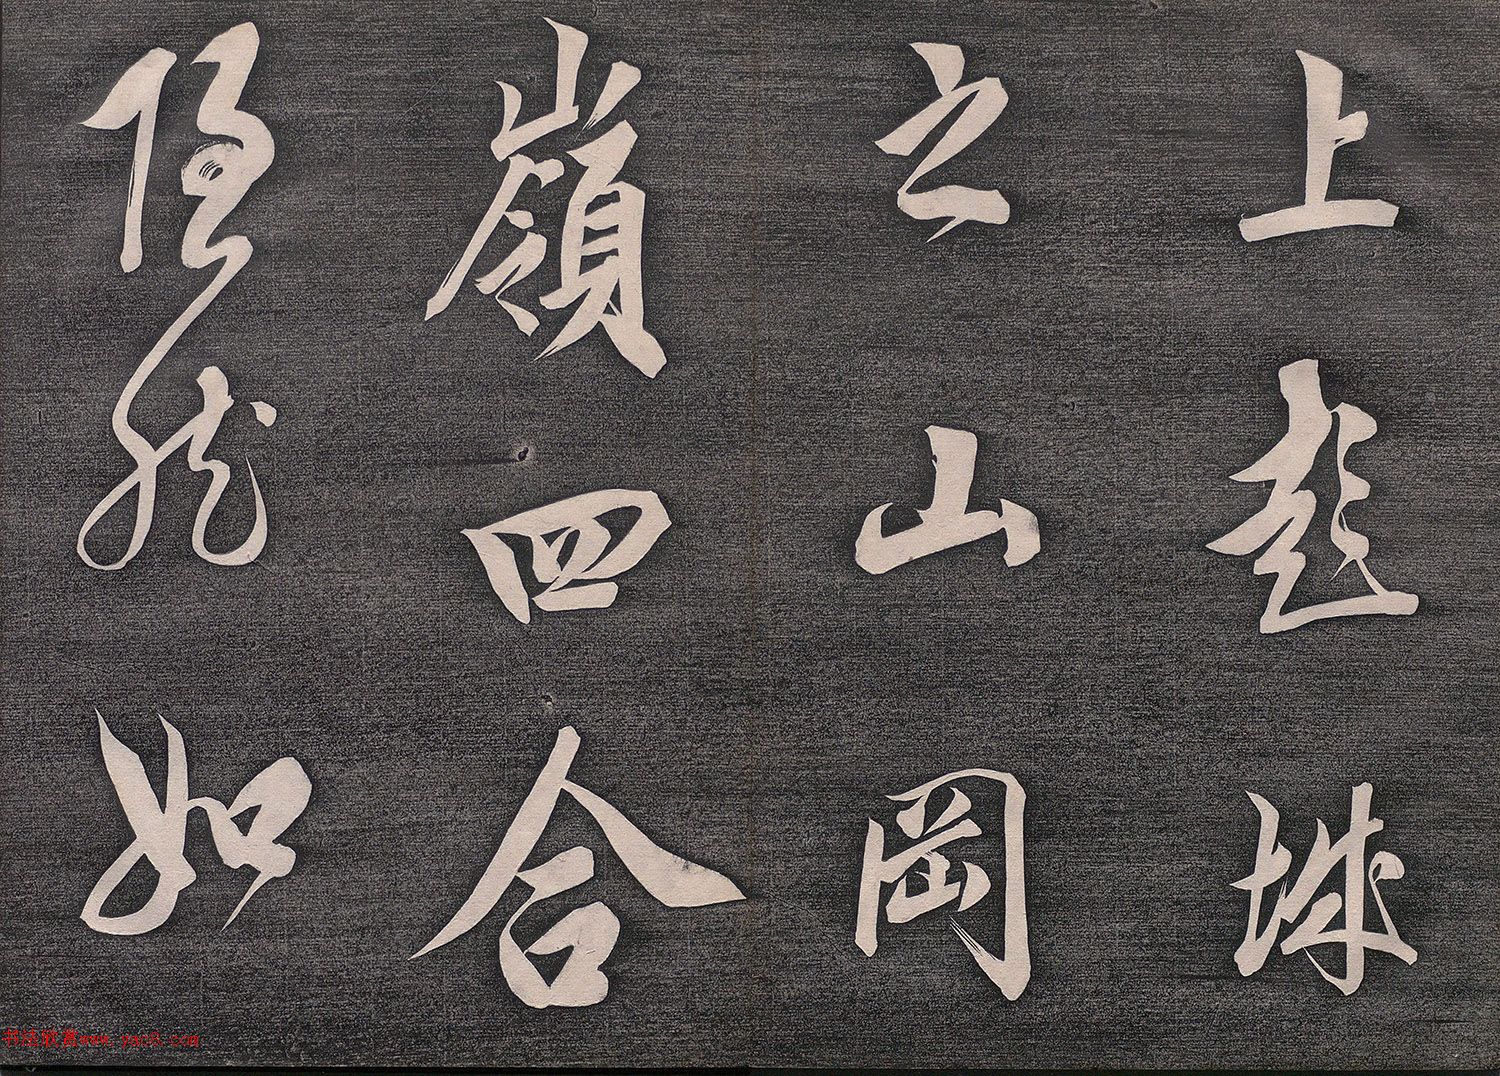 上彭城
之山岡
嶺四合
隱然如
书法欣赏www.yac8.com